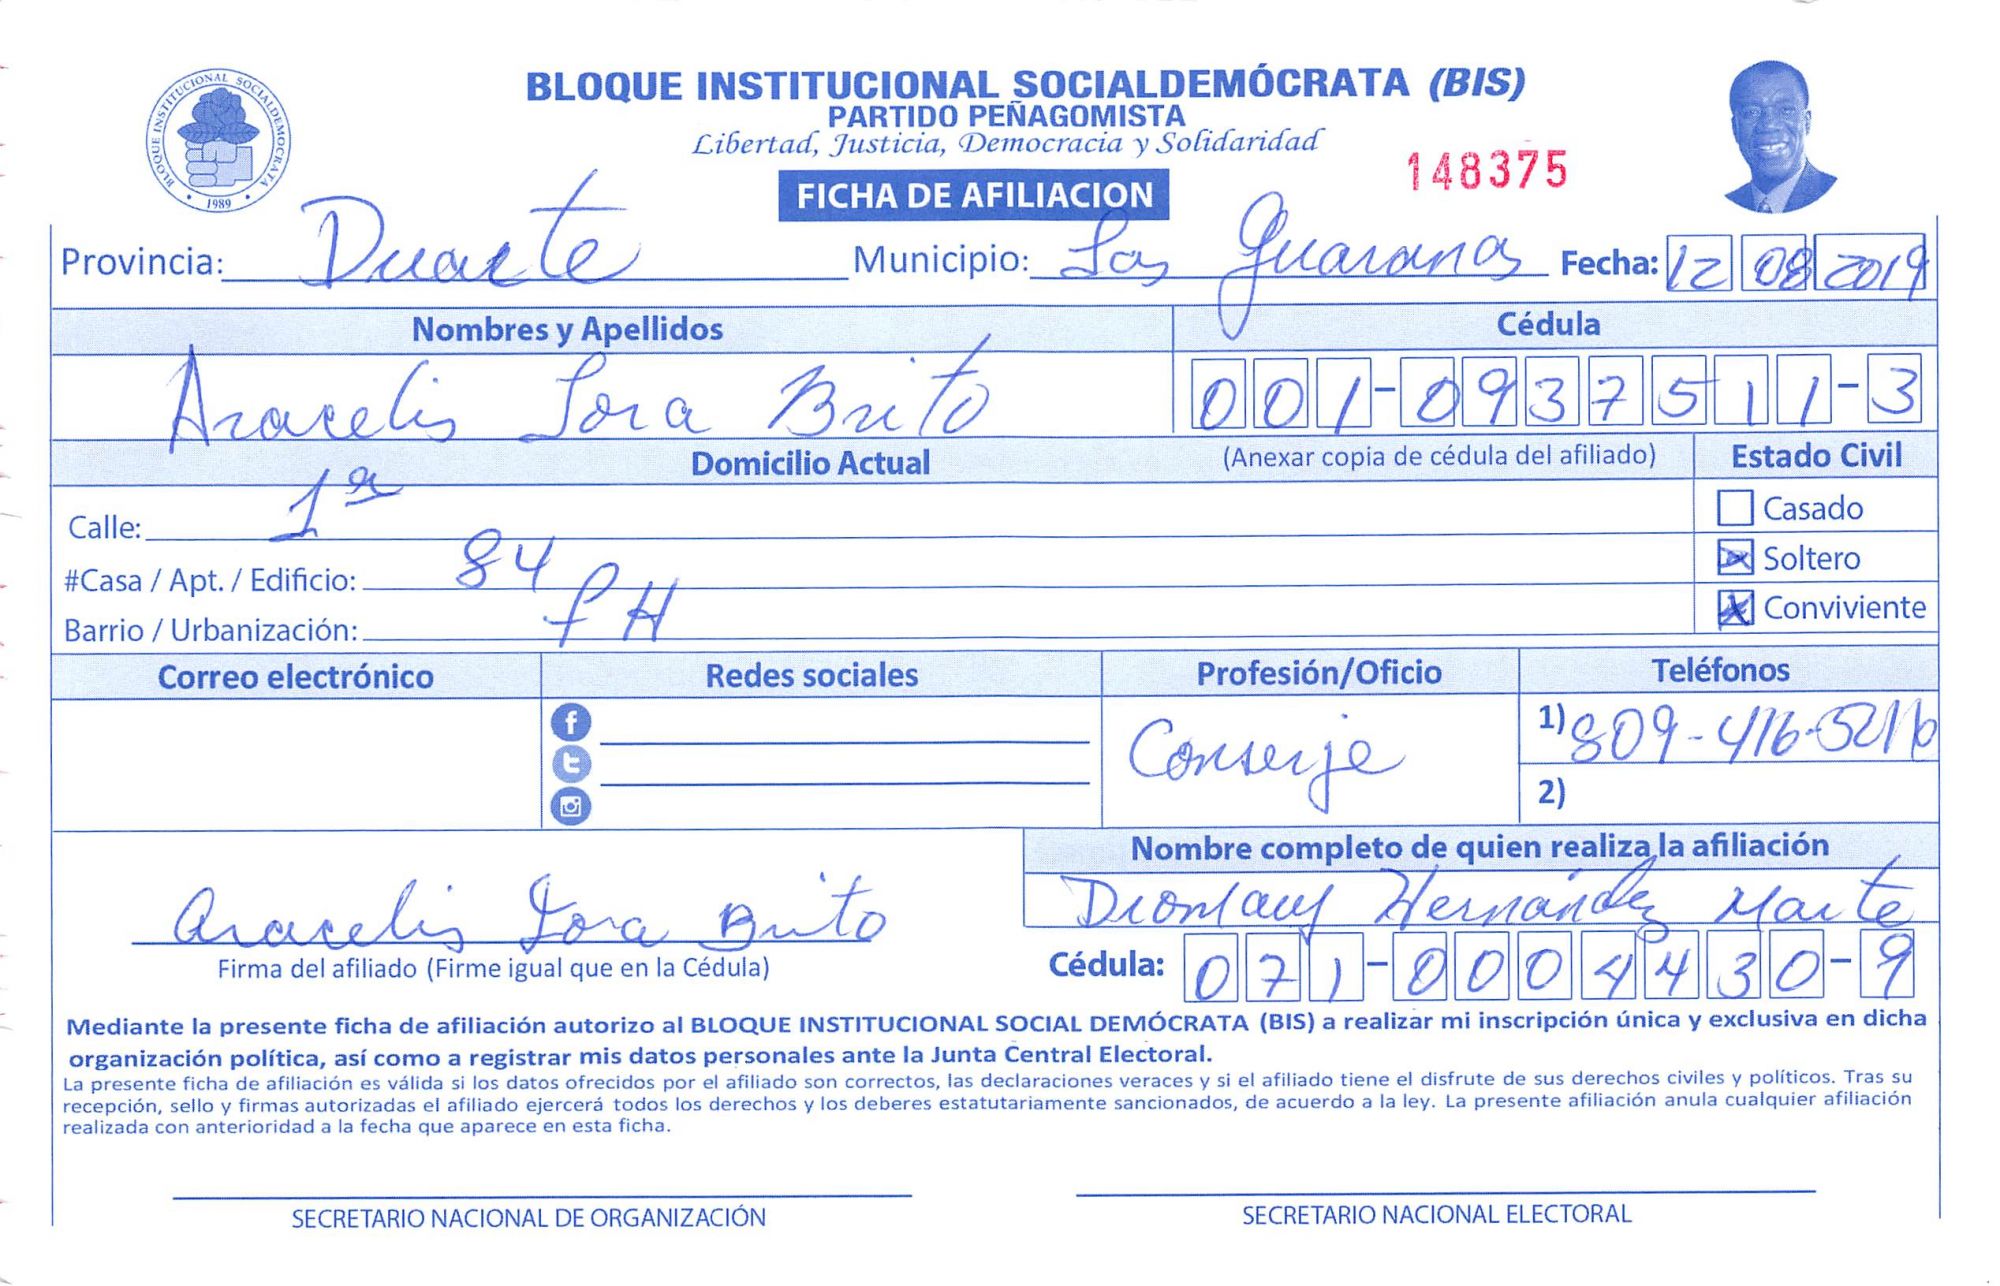 BLOQUE INSTITUCIONAL SOCIALDEMÓCRATA (BIS)
PARTIDO PEÑAGOMISTA
Libertad, Justicia, Democracia y Solidaridad
BLOQUE INSTITUCIONAL SOCIALDEMOCRATA
1989
148375
FICHA DE AFILIACION
Provincia: Duarte Municipio: Las Guaranas Fecha: 12 08 2019
Nombres y Apellidos Cédula
Aracelis Lora Brito 001-0937511-3
Domicilio Actual (Anexar copia de cédula del afiliado) Estado Civil
Calle: 1ra Casado
#Casa / Apt. / Edificio: 84 Soltero
Barrio / Urbanización: PH Conviviente
Correo electrónico Redes sociales Profesión/Oficio Teléfonos
Conserje 1) 809-416-5216
2)
Nombre completo de quien realiza la afiliación
Hernández Marte
Aracelis Lora Brito
Firma del afiliado (Firme igual que en la Cédula) Cédula: 071-0004430-9
Mediante la presente ficha de afiliación autorizo al BLOQUE INSTITUCIONAL SOCIAL DEMÓCRATA (BIS) a realizar mi inscripción única y exclusiva en dicha
organización política, así como a registrar mis datos personales ante la Junta Central Electoral.
La presente ficha de afiliación es válida si los datos ofrecidos por el afiliado son correctos, las declaraciones veraces y si el afiliado tiene el disfrute de sus derechos civiles y políticos. Tras su
recepción, sello y firmas autorizadas el afiliado ejercerá todos los derechos y los deberes estatutariamente sancionados, de acuerdo a la ley. La presente afiliación anula cualquier afiliación
realizada con anterioridad a la fecha que aparece en esta ficha.
SECRETARIO NACIONAL DE ORGANIZACIÓN SECRETARIO NACIONAL ELECTORAL